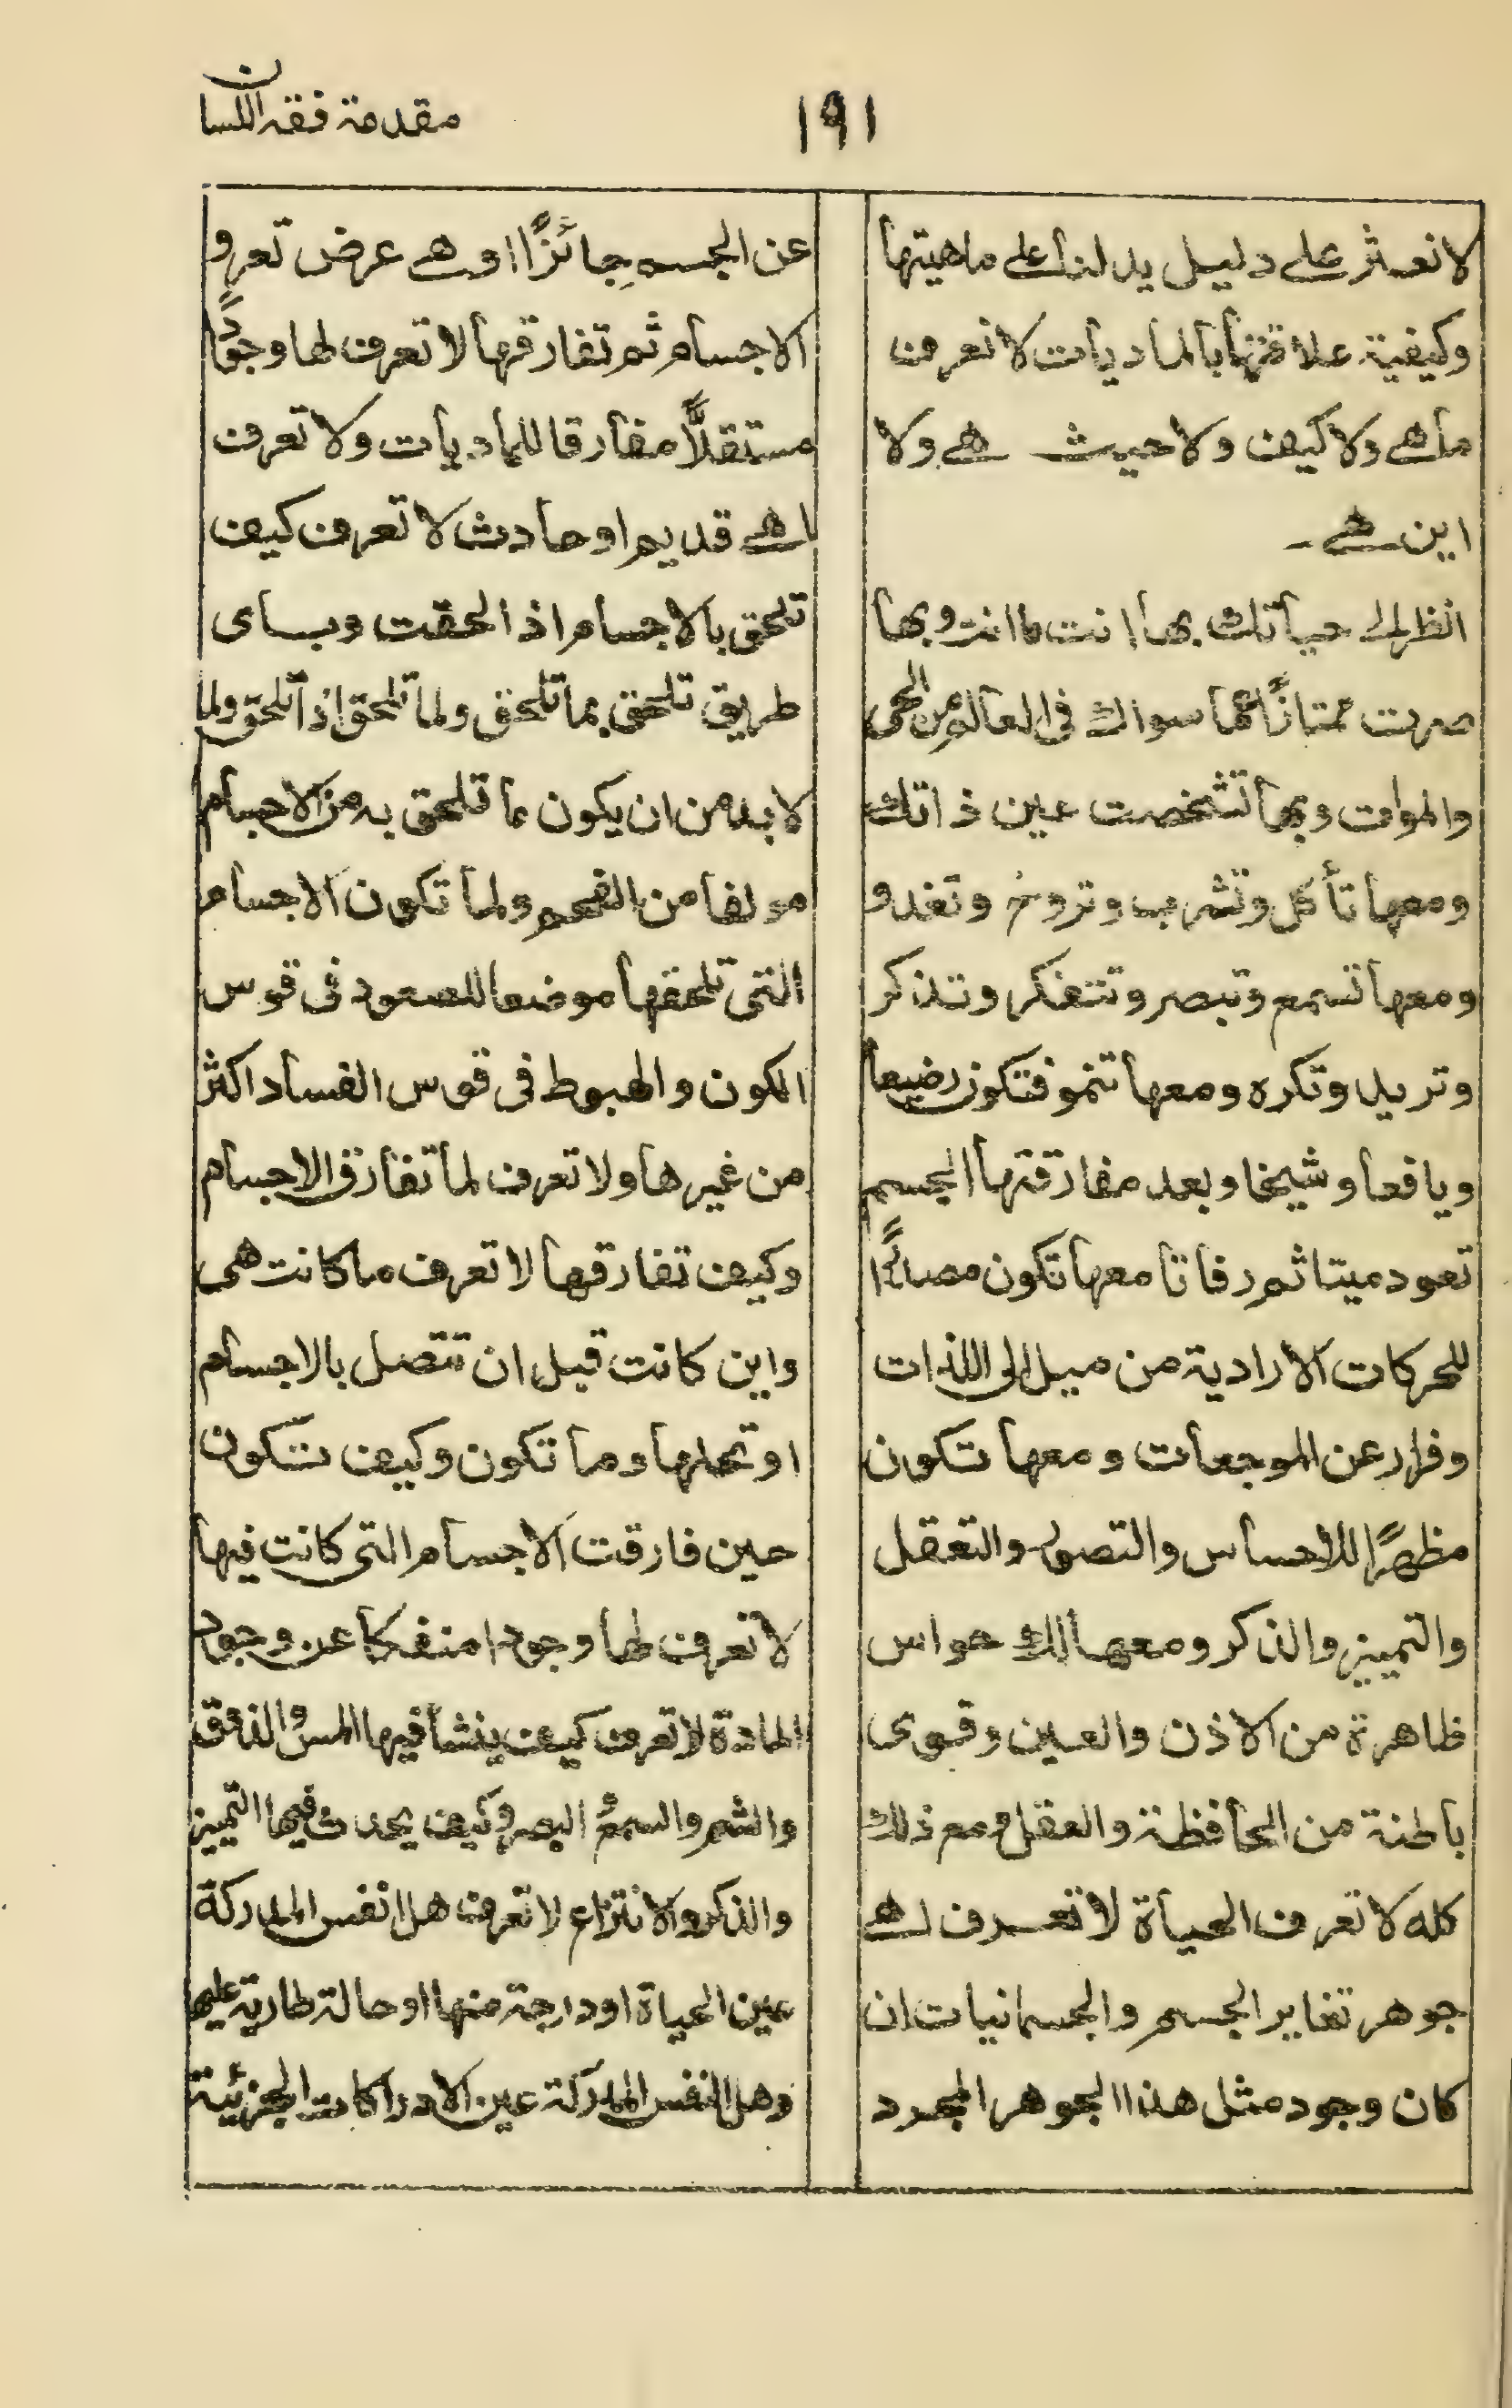 مقدمة فقه اللسان
١٩١
لا نعثر على دليل يدلنا على ماهيتها
وكيفية علاقتها بالماديات لا نعرف
ما هے ولا كيف ولا حيث هے ولا
اين هے۔
انظر الى حياتك بها انت ما انت وبها
صرت ممتازًا عما سواك فى العالم من الحى
والموات وبها تشخصت عين ذاتك
ومعها تأكل وتشرب وتروح وتغدو
ومعها تسمع وتبصر وتتفكر وتذكر
وتريد وتكره ومعها تنمو فتكون رضيعا
ويافعا وشيخا وبعد مفارقتها الجسم
تعود ميتا ثم رفاتا معها تكون مصدرًا
للحركات الارادية من ميل الى اللذات
وفرار عن الموجعات ومعها تكون
مظهرًا للاحساس والتصور والتعقل
والتميز والذكر ومعها لك حواس
ظاهرة من الاذن والعين وقوى
باطنة من الحافظة والعقل ومع ذلك
كله لا تعرف الحياة لا تعرف اهے
جوهر تغاير الجسم والجسمانيات ان
كان وجود مثل هذا الجوهر المجرد
عن الجسم جائزًا او هے عرض تعرو
الاجسام ثم تفارقها لا تعرف لها وجودًا
مستقلًّا مفارقا للماديات ولا تعرف
اهے قديم او حادث لا تعرف كيف
تلحق بالاجسام اذا لحقت وباى
طريق تلحق بما تلحق ولما تلحق اذا تلحق ولما
لا بد من ان يكون ما تلحق به من الاجسام
مولفا من الفحم ولما تكون الاجسام
التى تلحقها موضعا للصعود فى قوس
الكون والهبوط فى قوس الفساد اكثر
من غيرها ولا تعرف لما تفارق الاجسام
وكيف تفارقها لا تعرف ما كانت هى
واين كانت قبل ان تتصل بالاجسام
او تحلها وما تكون وكيف تتكون
حين فارقت الاجسام التى كانت فيها
لا نعرف لها وجودا منفكا عن وجود
المادة لا تعرف كيف ينشأ فيها المس والذوق
والشم والسمع والبصر وكيف يحدث فيها التميز
والذكر والانتزاع لا تعرف هل النفس المدركة
عين الحياة او درجة منها او حالة طارية عليها
وهل النفس المدركة عين الادراكات الجزئية